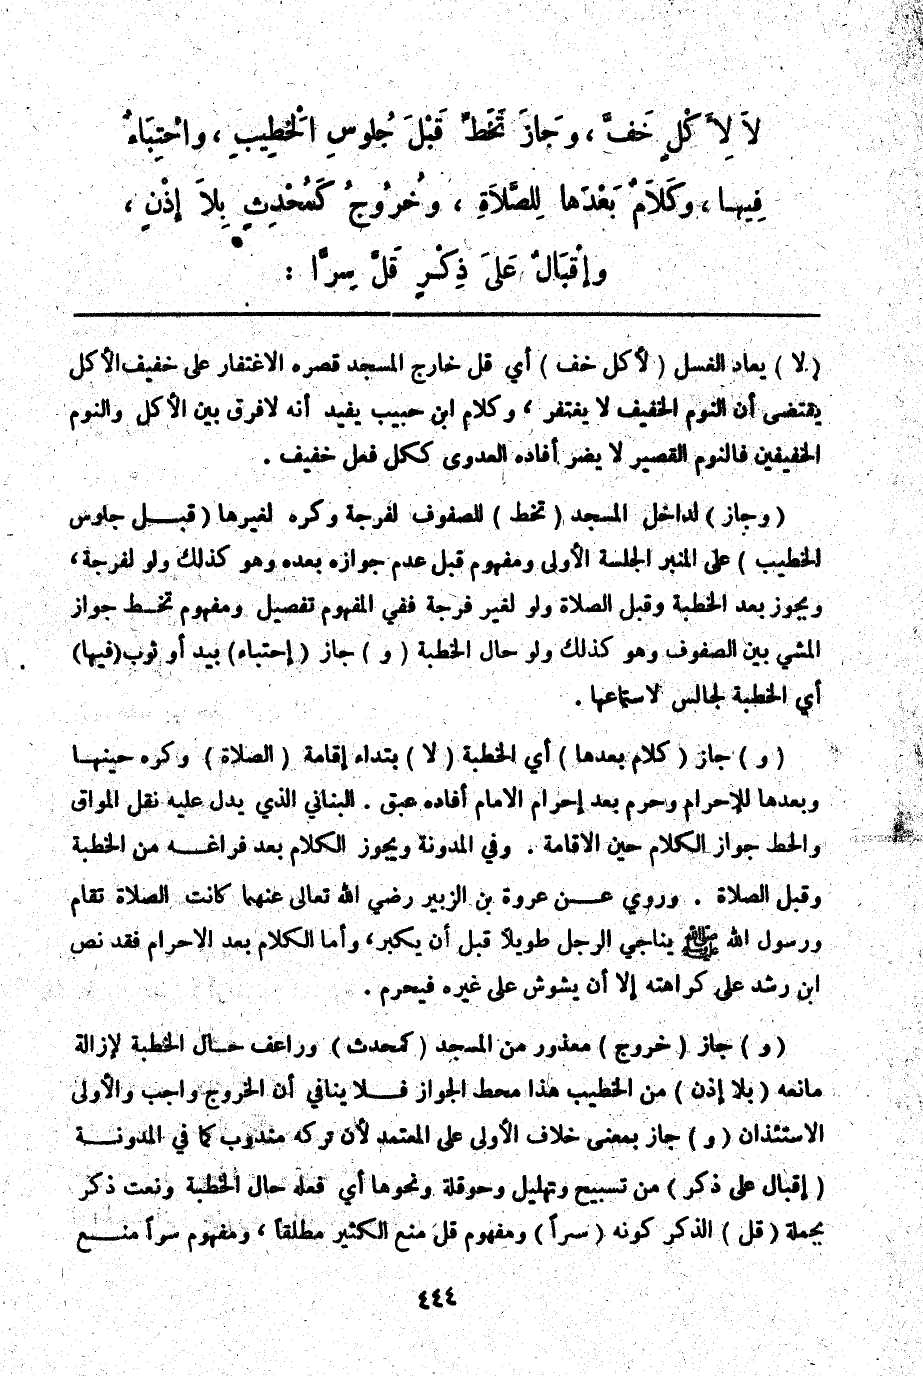 لاَ لِأَكْلٍ خَفَّ ، وجَازَ تَخَطٍّ قَبْلَ جُلوسِ الْخَطِيبِ ، واحْتِبَاءٌ
فِيهـا ، وكَلاَمٌ بَعْدَها لِلصَّلاَةِ ، وخُرُوجُ كَمُحْدِثٍ بِلاَ إذْنٍ ،
وإقْبَالٌ عَلَى ذِكْـرٍ قَلَّ سِرًّا :
( لا ) يعاد الغسل ( لأكل خف ) أي قل خارج المسجد قصره الاغتفار على خفيف الأكل
يقتضى أن النوم الخفيف لا يغتفر ، وكلام ابن حبيب يفيد أنه لافرق بين الأكل والنوم
الخفيفين فالنوم القصير لا يضر أفاده العدوى ككل فعل خفيف .
( وجاز ) لداخل المسجد ( تخط ) للصفوف لفرجة وكره لغيرها ( قبـــل جلوس
الخطيب ) على المنبر الجلسة الأولى ومفهوم قبل عدم جوازه بعده وهو كذلك ولو لفرجة ،
ويجوز بعد الخطبة وقبل الصلاة ولو لغير فرجة ففي المفهوم تفصيل ومفهوم تخــط جواز
المشي بين الصفوف وهو كذلك ولو حال الخطبة ( و ) جاز ( إحتباء) بيد أو ثوب(فيها)
أي الخطبة لجالس لاستماعها .
( و ) جاز ( كلام بعدها ) أي الخطبة ( لا ) بتداء إقامة ( الصلاة ) وكره حينهــا
وبعدها للإحرام وحرم بعد إحرام الامام أفاده عبق . البناني الذي يدل عليه نقل المواق
والحط جواز الكلام حين الاقامة . وفي المدونة ويجوز الكلام بعد فراغـــه من الخطبة
وقبل الصلاة . وروي عـــن عروة بن الزبير رضي الله تعالى عنهما كانت الصلاة تقام
ورسول الله ﷺ يناجي الرجل طويلاً قبل أن يكبر ، وأما الكلام بعد الاحرام فقد نص
ابن رشد على كراهته إلا أن يشوش على غيره فيحرم .
( و ) جاز ( خروج ) معذور من المسجد ( كمحدث ) وراعف حــال الخطبة لإزالة
مانعه ( بلا إذن ) من الخطيب هذا محط الجواز فـــلا ينافي أن الخروج واجب والأولى
الاستئذان ( و ) جاز بمعنى خلاف الأولى على المعتمد لأن تركه مندوب كما في المدونـــة
( إقبال على ذكر ) من تسبيح وتهليل وحوقلة ونحوها أي فعله حال الخطبة ونعت ذكر
بجملة ( قل ) الذكر كونه ( سراً ) ومفهوم قل منع الكثير مطلقاً ، ومفهوم سراً منـــع
٤٤٤